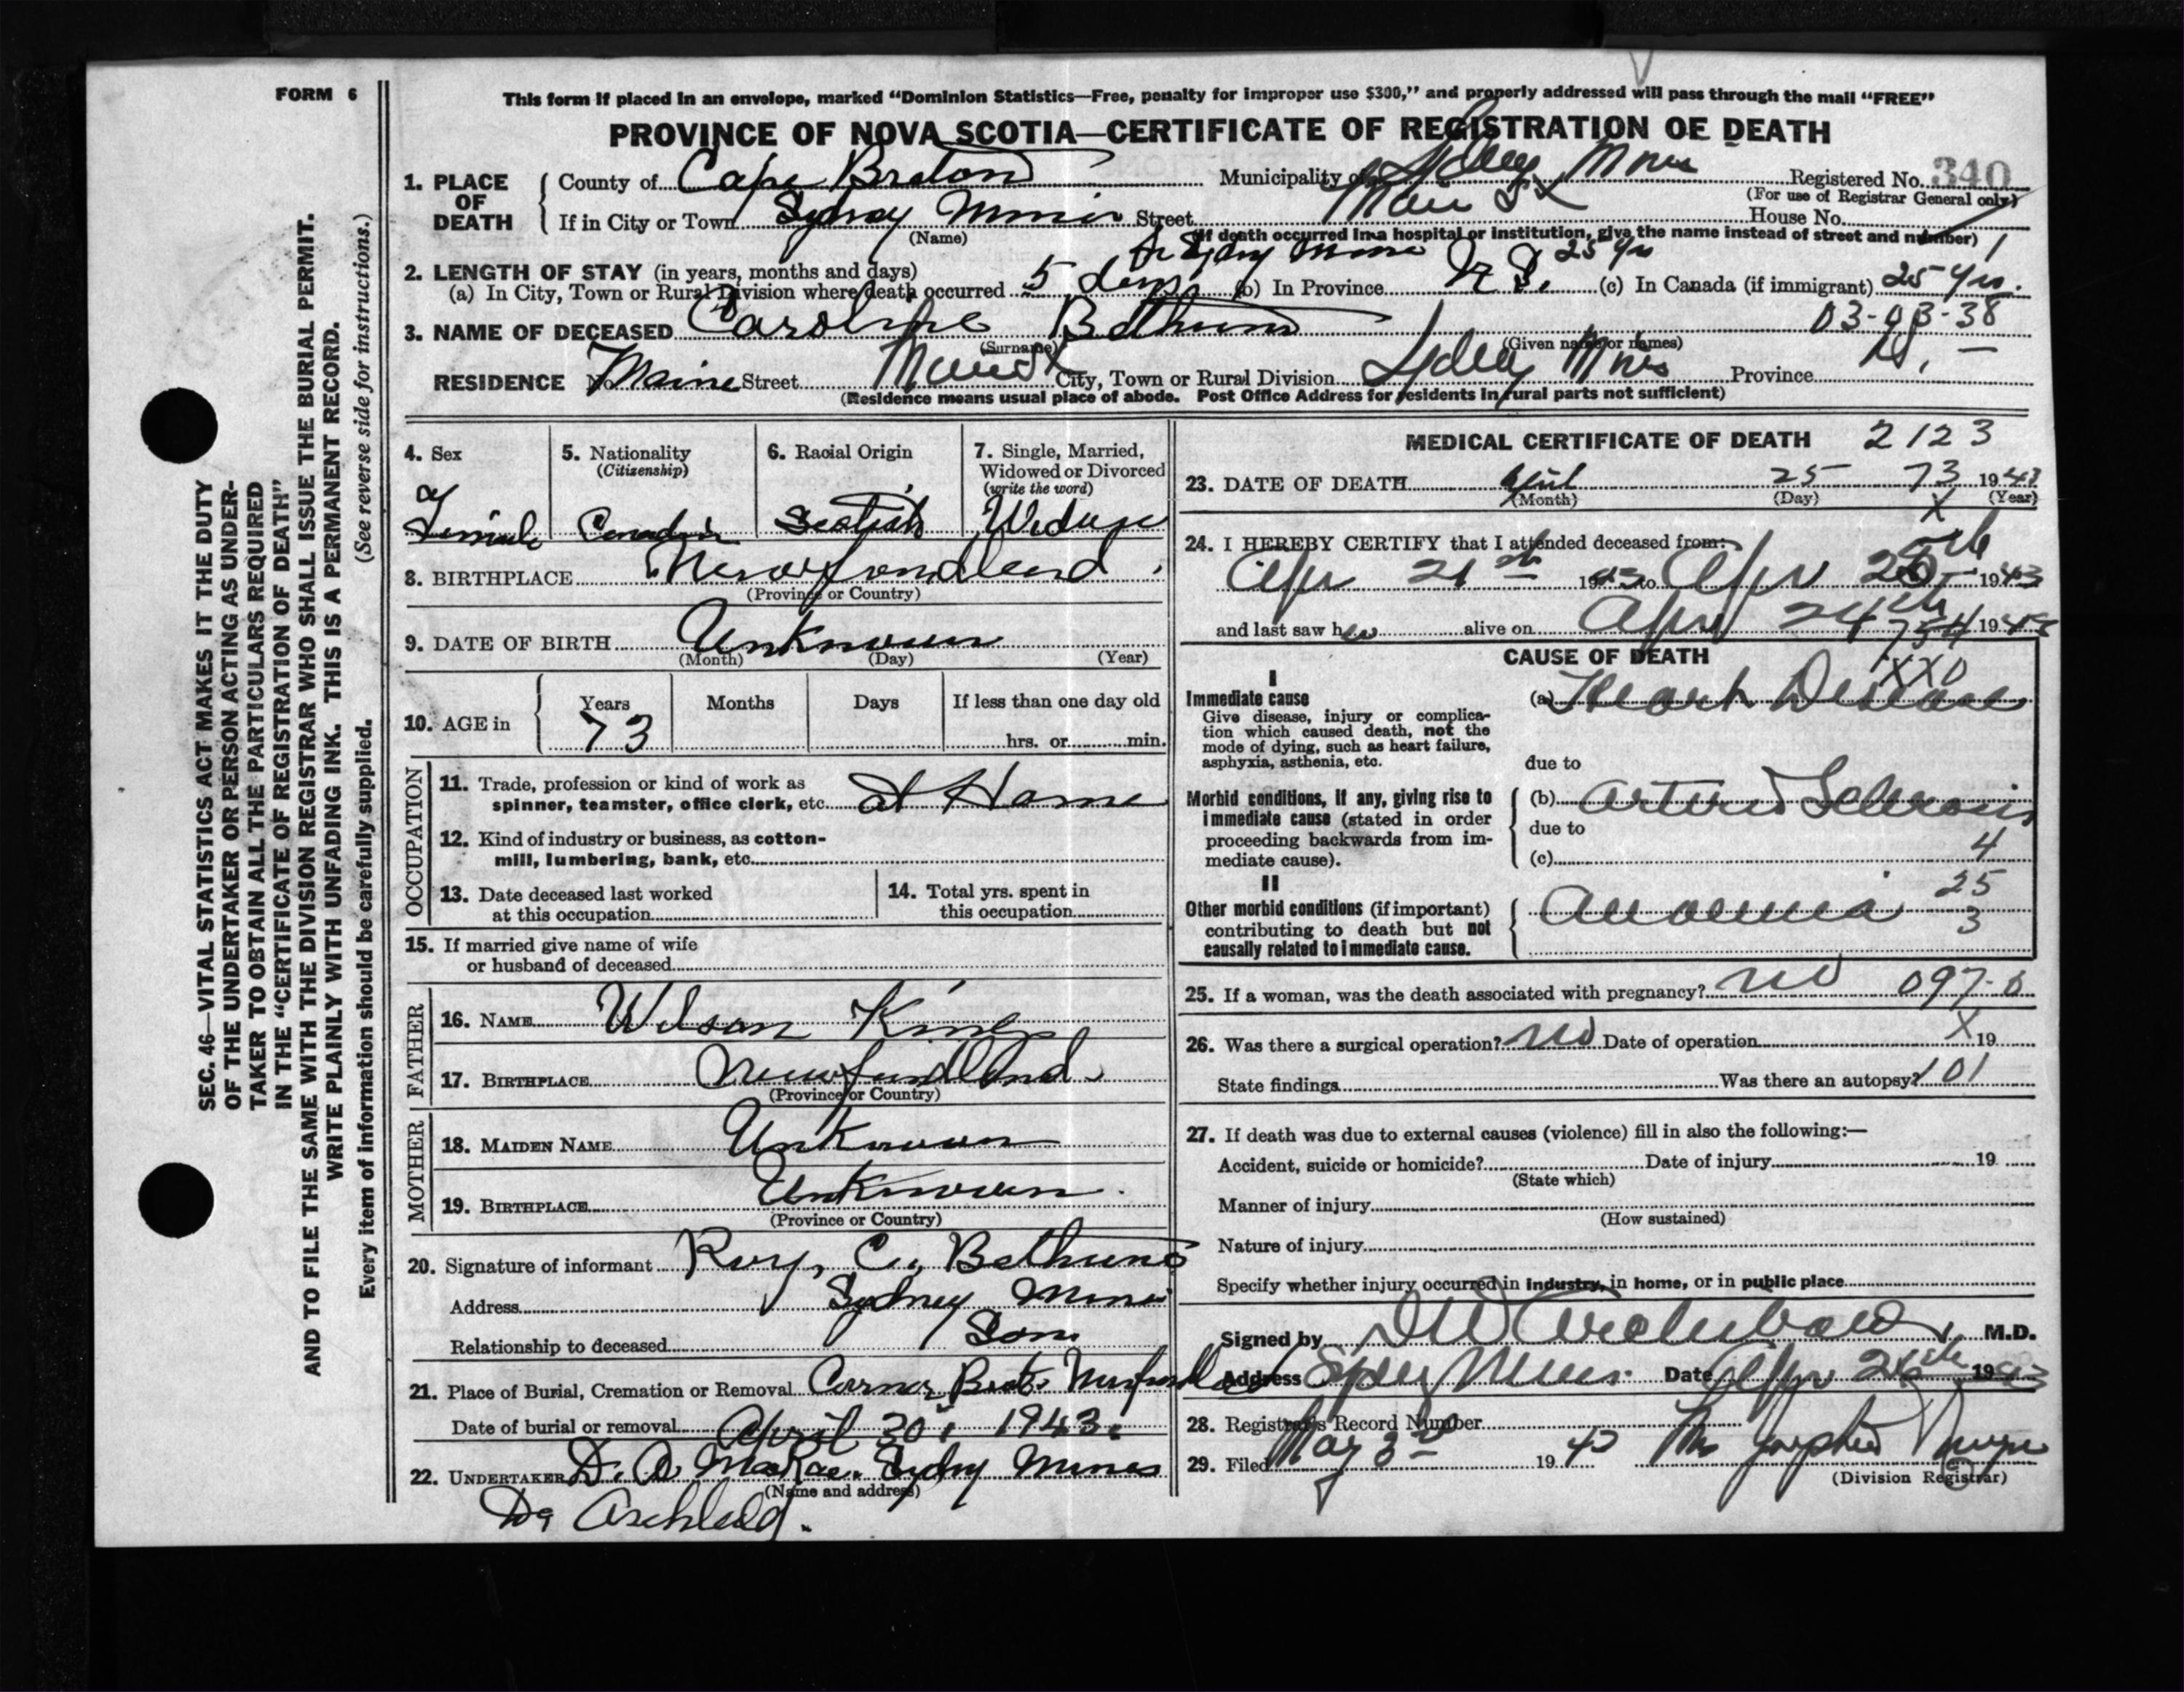 FORM 6
This form if placed in an envelope, marked “Dominion Statistics—Free, penalty for improper use $300,” and properly addressed will pass through the mail “FREE”
PROVINCE OF NOVA SCOTIA—CERTIFICATE OF REGISTRATION OF DEATH
1. PLACE OF DEATH
County of Cape Breton Municipality of Sydney Mines Registered No. 340
(For use of Registrar General only)
If in City or Town Sydney Mines Street Main St House No.
(Name) (If death occurred in a hospital or institution, give the name instead of street and number) 1
2. LENGTH OF STAY (in years, months and days) Sydney Mines 25 yrs
(a) In City, Town or Rural Division where death occurred 5 days (b) In Province N. S. (c) In Canada (if immigrant) 25 yrs.
3. NAME OF DECEASED Caroline Bethune 03-03-38
(Surname) (Given name or names)
RESIDENCE No. Street Main St City, Town or Rural Division Sydney Mines Province N.S.
(Residence means usual place of abode. Post Office Address for residents in rural parts not sufficient)
4. Sex Female
5. Nationality (Citizenship) Canadian
6. Racial Origin Scotish
7. Single, Married, Widowed or Divorced (write the word)
8. BIRTHPLACE Newfoundland
(Province or Country)
9. DATE OF BIRTH Unknown
(Month) (Day) (Year)
10. AGE in Years 73 Months Days If less than one day old
hrs. or min.
OCCUPATION
11. Trade, profession or kind of work as
spinner, teamster, office clerk, etc. at Home
12. Kind of industry or business, as cotton-
mill, lumbering, bank, etc.
13. Date deceased last worked
at this occupation
14. Total yrs. spent in
this occupation
15. If married give name of wife
or husband of deceased
FATHER
16. NAME Wilson
17. BIRTHPLACE Newfundland
(Province or Country)
MOTHER
18. MAIDEN NAME Unknown
19. BIRTHPLACE Unknown.
(Province or Country)
20. Signature of informant Roy, C., Bethune
Address Sydney Mines
Relationship to deceased Son.
21. Place of Burial, Cremation or Removal Corner
Date of burial or removal April 30, 1943.
22. UNDERTAKER D. A. MacRae. Sydny Mines
(Name and address)
Dr Archbald.
MEDICAL CERTIFICATE OF DEATH 2123
23. DATE OF DEATH April 25 73 1943
(Month) (Day) X (Year)
24. I HEREBY CERTIFY that I attended deceased from:
Apr 21st 1943 to Apr 25th 1943
and last saw her alive on Apr 24th 1943
CAUSE OF DEATH
XX0
I
Immediate cause
Give disease, injury or complica-
tion which caused death, not the
mode of dying, such as heart failure,
asphyxia, asthenia, etc.
(a) Heart Disease
due to
Morbid conditions, if any, giving rise to
immediate cause (stated in order
proceeding backwards from im-
mediate cause).
(b) Arterio Sclerosis
due to
(c) 4
II
Other morbid conditions (if important)
contributing to death but not
causally related to immediate cause.
25
Anaemia 3
25. If a woman, was the death associated with pregnancy? no 097-0
26. Was there a surgical operation? no Date of operation X 19
State findings Was there an autopsy? 101
27. If death was due to external causes (violence) fill in also the following:—
Accident, suicide or homicide? Date of injury 19
(State which)
Manner of injury
(How sustained)
Nature of injury
Specify whether injury occurred in industry, in home, or in public place
Signed by Archibald, M.D.
Address Sydney Mines. Date Apr 1943
28. Registrar's Record Number
29. Filed May 3rd 1943 Mrs Josephine
(Division Registrar)
SEC. 46—VITAL STATISTICS ACT MAKES IT THE DUTY
OF THE UNDERTAKER OR PERSON ACTING AS UNDER-
TAKER TO OBTAIN ALL THE PARTICULARS REQUIRED
IN THE “CERTIFICATE OF REGISTRATION OF DEATH”
AND TO FILE THE SAME WITH THE DIVISION REGISTRAR WHO SHALL ISSUE THE BURIAL PERMIT.
WRITE PLAINLY WITH UNFADING INK. THIS IS A PERMANENT RECORD.
Every item of information should be carefully supplied. (See reverse side for instructions.)